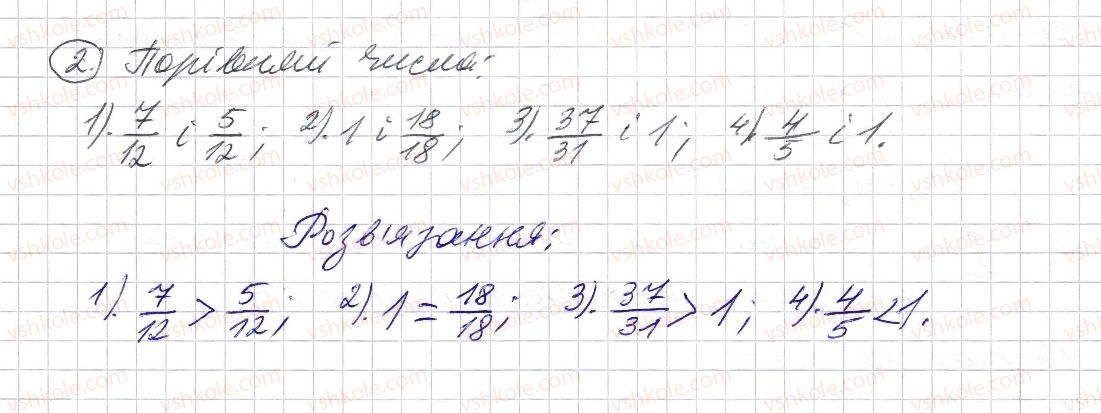 2. Порівняй числа:
1). 7/12 і 5/12; 2). 1 і 18/18; 3). 37/31 і 1; 4). 4/5 і 1.
Розв'язання:
1). 7/12 > 5/12; 2). 1 = 18/18; 3). 37/31 > 1; 4). 4/5 < 1.
vshkole.com